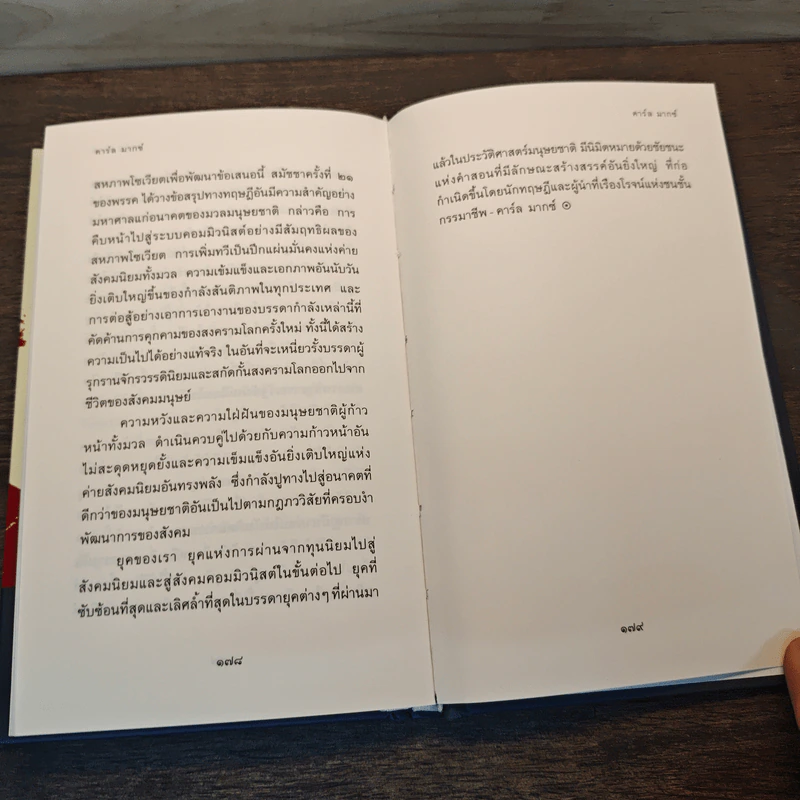 คาร์ล มากซ์
สหภาพโซเวียตเพื่อพัฒนาข้อเสนอนี้ สมัชชาครั้งที่ ๒๑
ของพรรค ได้วางข้อสรุปทางทฤษฎีอันมีความสำคัญอย่าง
มหาศาลแก่อนาคตของมวลมนุษยชาติ กล่าวคือ การ
คืบหน้าไปสู่ระบบคอมมิวนิสต์อย่างมีสัมฤทธิผลของ
สหภาพโซเวียต การเพิ่มทวีเป็นปึกแผ่นมั่นคงแห่งค่าย
สังคมนิยมทั้งมวล ความเข้มแข็งและเอกภาพอันนับวัน
ยิ่งเติบใหญ่ขึ้นของกำลังสันติภาพในทุกประเทศ และ
การต่อสู้อย่างเอาการเอางานของบรรดากำลังเหล่านี้ที่
คัดค้านการคุกคามของสงครามโลกครั้งใหม่ ทั้งนี้ได้สร้าง
ความเป็นไปได้อย่างแท้จริง ในอันที่จะเหนี่ยวรั้งบรรดาผู้
รุกรานจักรวรรดินิยมและสกัดกั้นสงครามโลกออกไปจาก
ชีวิตของสังคมมนุษย์
ความหวังและความใฝ่ฝันของมนุษยชาติผู้ก้าว
หน้าทั้งมวล ดำเนินควบคู่ไปด้วยกับความก้าวหน้าอัน
ไม่สะดุดหยุดยั้งและความเข้มแข็งอันยิ่งเติบใหญ่แห่ง
ค่ายสังคมนิยมอันทรงพลัง ซึ่งกำลังปูทางไปสู่อนาคตที่
ดีกว่าของมนุษยชาติอันเป็นไปตามกฎภววิสัยที่ครอบงำ
พัฒนาการของสังคม
ยุคของเรา ยุคแห่งการผ่านจากทุนนิยมไปสู่
สังคมนิยมและสู่สังคมคอมมิวนิสต์ในขั้นต่อไป ยุคที่
ซับซ้อนที่สุดและเลิศล้ำที่สุดในบรรดายุคต่างๆ ที่ผ่านมา
๑๗๘
คาร์ล มากซ์
แล้วในประวัติศาสตร์มนุษยชาติ มีนิมิตหมายด้วยชัยชนะ
แห่งคำสอนที่มีลักษณะสร้างสรรค์อันยิ่งใหญ่ ที่ก่อ
กำเนิดขึ้นโดยนักทฤษฎีและผู้นำที่เรืองโรจน์แห่งชนชั้น
กรรมาชีพ - คาร์ล มากซ์ ⊙
๑๗๙